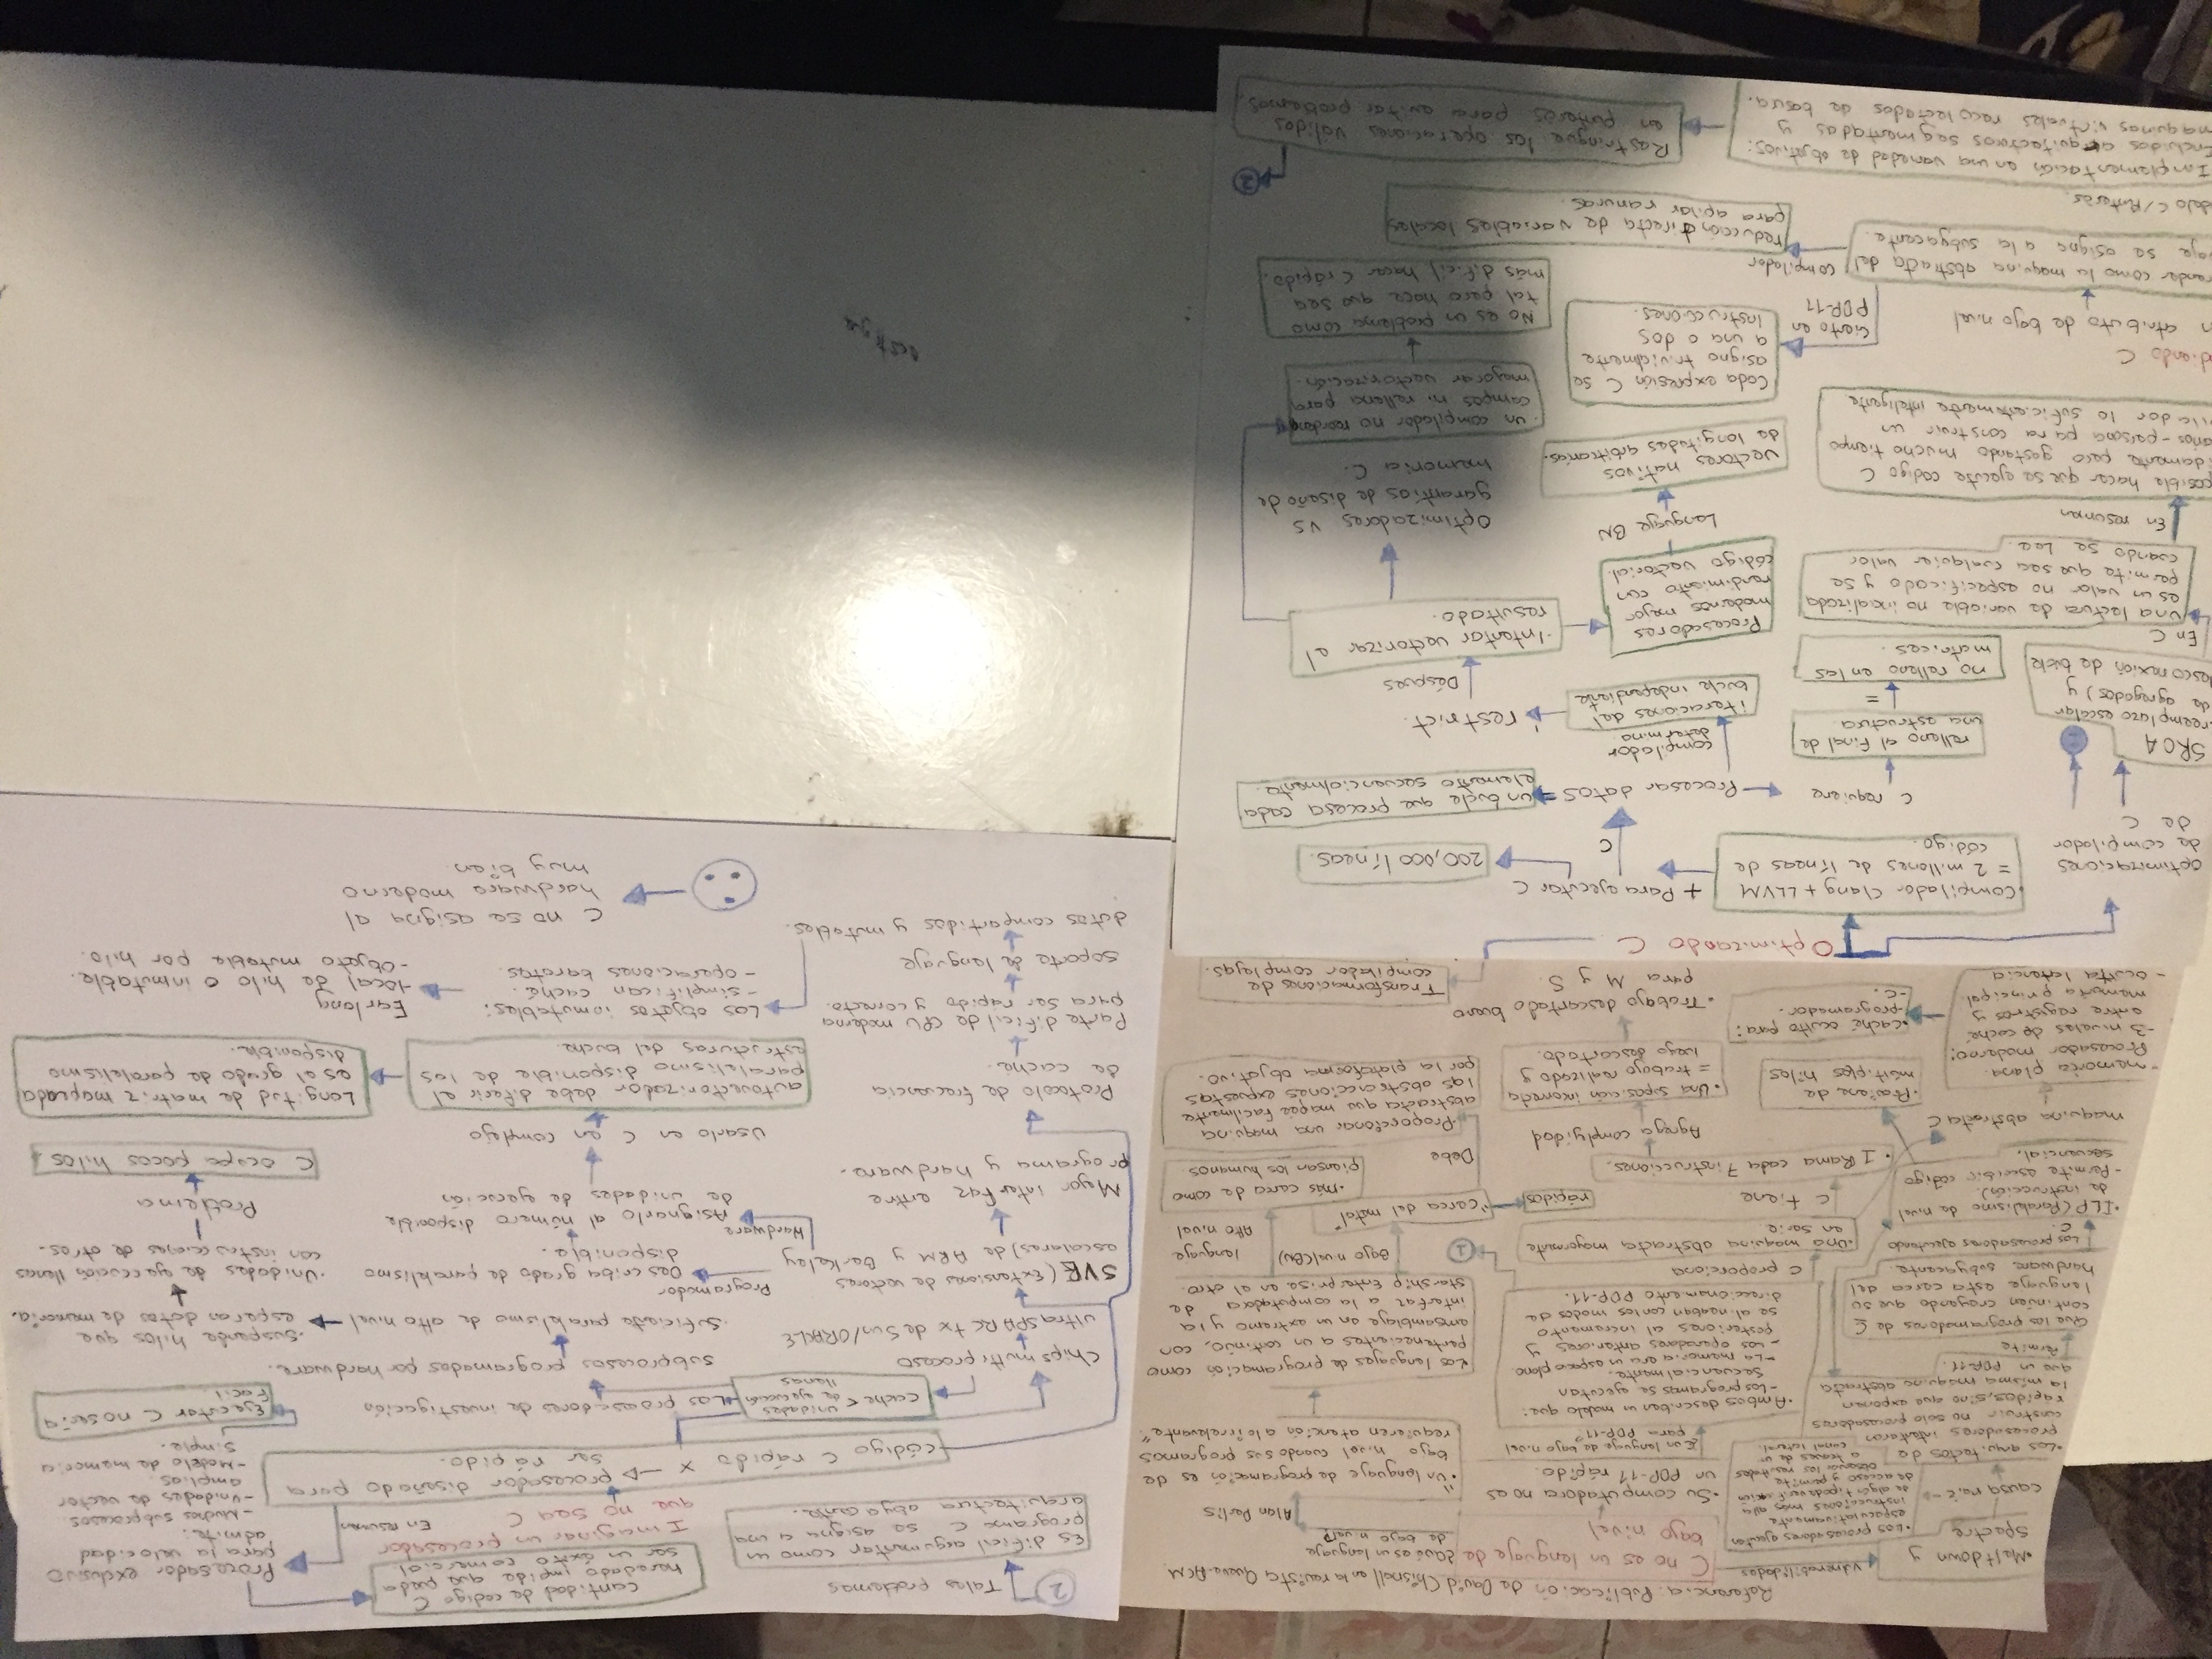 Referencia: Publicación de David Chisnall en la revista Queue-ACM.
C no es un lenguaje de
bajo nivel
vulnerabilidades
•Meltdown y
spectre
causa raíz
•Los procesadores ejecutan
especulativamente
instrucciones más alla
de algún tipo de verificación
de acceso y permite
observar los resultados
a través de un
canal lateral.
•Los arquitectos de
procesadores intentaron
construir no solo procesadores
rápidos, sino que exponen
la misma maquina abstracta
que un PDP-11.
Permite
Que los programadores de C
continúen creyando que su
lenguaje esta cerca del
hardware subyacente.
Los procesadores ejecutando
C.
•ILP (Paralelismo de nivel
de instrucción).
- Permite escribir código
secuencial.
maquina abstracta C
•Proviene de
múltiples hilos
- memoria plana.
Procesador moderno:
-3 niveles de caché
entre registros y
memoria principal.
- oculta latencia
•caché oculto para:
-programador.
-C.
•Su computadora no es
un PDP-11 rápido.
¿Es un lenguaje de bajo nivel
para PDP-11?
•Ambos describen un modelo que:
- Los programas se ejecutan
secuencialmente.
- La memoria era un espacio plano
- Los operadores anteriores y
posteriores al incremento
se alineaban con los modos de
direccionamiento PDP-11.
C proporciona
1
•Una maquina abstracta mayormente
en serie.
C tiene
• 1 Rama cada 7 instrucciones.
Agrega complejidad
•Una suposición incorrecta
= trabajo realizado y
luego descartado.
•Trabajo descartado bueno
para M y S.
¿Qué es un lenguaje
de bajo nivel?
Alan Perlis
"Un lenguaje de programación es de
bajo nivel cuando sus programas
requieren atención a lo irrelevante".
•Los lenguajes de programación como
pertenecientes a un continúo, con
ensamblaje en un extremo y la
interfaz a la computadora de
starship Enterprise en el otro.
Bajo nivel (BN)
lenguaje
Alto nivel
rápidos
"cerca del metal"
•más cerca de como
piensan los humanos.
Debe
Proporcionar una maquina
abstracta que mapee facilmente
las abstracciones expuestas
por la plataforma objetivo.
Transformaciones de
compilador complejas.
Optimizando C
optimizaciones
de compilador
de C
•Compilador Clang + LLVM
= 2 millones de líneas de
código.
+ Para ejecutar C
200,000 líneas.
C
C requiere
Procesar datos =
un bucle que procesa cada
elemento secuencialmente.
SROA
reemplazo escalar
de agregados) y
desconexión de bucle
relleno al final de
una estructura.
=
no relleno en las
matrices.
compilador
determina
iteraciones del
bucle independiente
restrict.
Déspues
•Intentar vectorizar el
resultado.
Procesadores
modernos mejor
rendimiento con
código vectorial.
Lenguaje BN
vectores nativos
de longitudes arbitrarias.
Optimizadores vs
garantías de diseño de
memoria C.
un compilador no reordena
campos ni rellena para
mejorar vectorización.
No es un problema como
tal pero hace que sea
más dificil hacer C rápido.
En C
una lectura de variable no inicializada
es un valor no especificado y se
permite que sea cualquier valor
cuando se lee.
En resumen
posible hacer que se ejecute código C
idamente pero gastando mucho tiempo
años-persona para construir un
ilador lo suficientemente inteligente
diendo C
n atributo de bajo nivel
Cierto en
PDP-11
Cada expresión C se
asigna trivialmente
a una o dos
Instrucciones.
ender como la maquina abstracta del
uaje se asigna a la subyacente.
compilador
reducción directa de variables locales
para apilar ranuras.
delo C/Punteros.
Implementación en una variedad de objetivos:
Incluidos arquitecturas segmentadas y
maquinas virtuales recolectados de basura.
Restringue las operaciones válidas
en punteros para evitar problemas.
2
2
Tales problemas
Es dificil argumentar como un
programa C se asigna a una
arquitectura abyacente.
cantidad de codigo C
heredado impide que pueda
ser un éxito comercial.
Imaginar un procesador
que no sea C
En resumen
Procesador exclusivo
para la velocidad
admite:
- Muchos subprocesos.
- Unidades de vector
amplias.
- Modelo de memoria
simple.
Ejecutar C no sería
facil.
código C rápido x
procesador diseñado para
ser rápido.
cache <
unidades
de ejecución
llenas
Los procesadores de investigación
Chips multiproceso
ultraSPARC tx de Sun/ORACLE
subprocesos programados por hardware.
•Suficiente paralelismo de alto nivel
•Suspende hilos que
esperan datos de memoria.
SVE (Extensiones de vectores
escalares) de ARM y Berkeley
Programador
Describa grado de paralelismo
disponible.
Hardware
Asignarlo al número disponible
de unidades de ejecución
•Unidades de ejeccución llenas
con instrucciones de otros.
Problema
C ocupa pocos hilos.
Mejor interfaz entre
programa y hardware.
Usarlo en C en complejo
autovectorizador debe diferir el
paralelismo disponible de las
estructuras del bucle.
Longitud de matriz mapeada
es el grado de paralelismo
disponible.
Protocolo de frecuencia
de caché.
Parte dificil de CPU moderna
para ser rápido y correcto.
soporte de lenguaje
datos compartidos y mutables.
Los objetos inmutables:
- simplifican caché.
- operaciones baratas.
Earlong
-local de hilo o inmutable.
-Objeto mutable por hilo.
C no se asigna al
hardware moderno
muy bien.